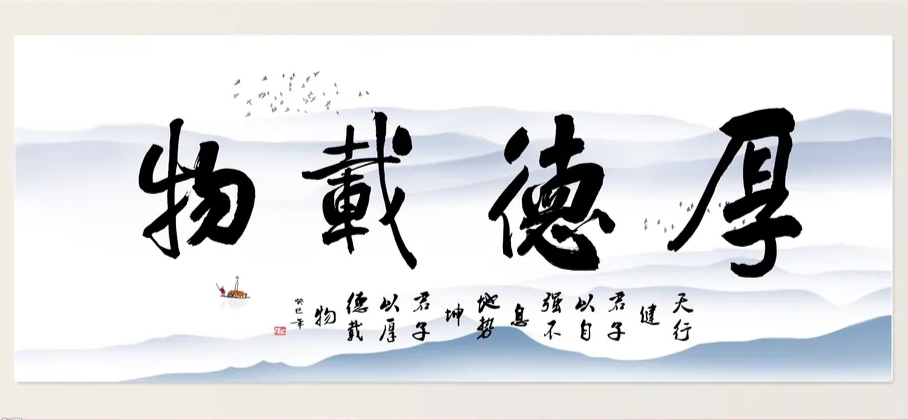 厚德載物
天行
健
君子
以自
强不
息
地势
坤
君子
以厚
德載
物
癸巳年